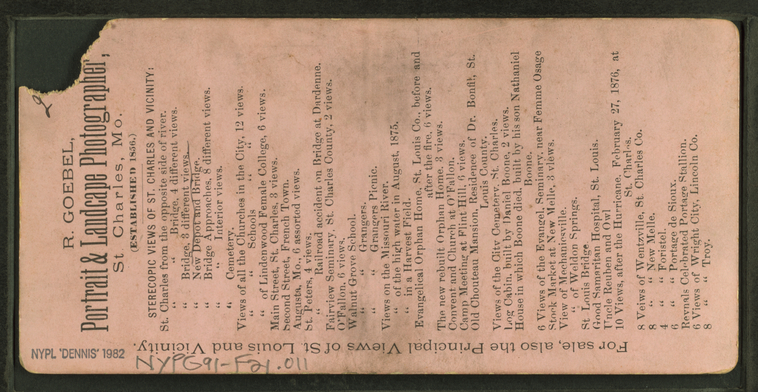 2
R. GOEBEL,
Portrait & Landcape Photographer,
St Charles, Mo.
(ESTABLISHED 1856.)
STERECOPIC VIEWS OF ST. CHARLES AND VICINITY:
St. Charles from the opposite side of river.
" " Bridge, 4 different views.
" " Bridge, 8 different views.
" " New Depot and Bridge.
" " Bridge Approaches, 8 different views.
" " Interior views.
" " Cemetery.
Views of all the Churches in the City, 12 views.
" " Schools " "
" of Lindenwood Female College, 6 views.
Main Street, St. Charles, 3 views.
Second Street, French Town.
Augusta, Mo., 7 assorted views.
St. Peters, 4 views.
" " Railroad accident on Bridge at Dardenne.
Fairview Seminary, St Charles County, 2 views.
O'Fallon, 6 views.
Walnut Grove School.
" " Grangers.
" " Grangers Picnic.
Views on the Missouri River.
" of the high water in August, 1875.
" in a Harvest Field.
Evangelical Orphan Home, St. Louis Co., before and
after the fire, 6 views.
The new rebuilt Orphan Home, 3 views.
Convent and Church at O'Fallon.
Camp Meeting at Flint Hill, 6 views.
Old Chouteau Mansion, Residence of Dr. Bonfil, St.
Louis County.
Views of the City Cemetery, St. Charles.
Log Cabin, built by Daniel Boone, 2 views.
House in which Boone died, built by his son Nathaniel
Boone.
6 Views of the Evangel, Seminary, near Femme Osage
Stock Market at New Melle, 3 views.
View of Mechanicsville.
" of Weldon Springs.
St. Louis Bridge.
Good Samaritan Hospital, St. Louis.
Uncle Reuben and Owl
10 Views, after the Hurricane, February 27, 1876, at
St. Charles.
8 Veiws of Wentzville, St Charles Co.
8 " " New Melle,
4 " " Foristel.
6 " " Portage de Sioux.
Reynals Celebrated Portage Stallion.
6 Views of Wright City, Lincoln Co.
8 " " Troy,
For sale, also the Principal Views of St. Louis and Vicinity.
NYPL 'DENNIS' 1982
NYPG91-F21.011